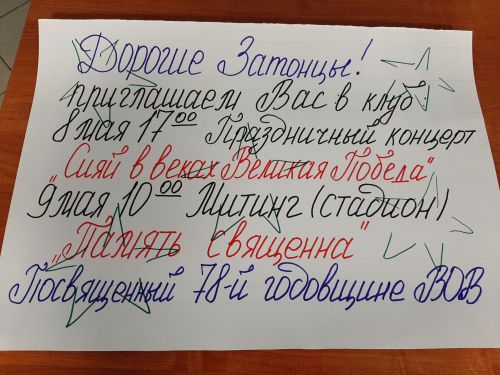 Дорогие Затонцы!
приглашаем Вас в клуб.
8 мая 17 00 Праздничный концерт
"Сияй в веках Великая Победа"
9 мая 10 00 Митинг (стадион)
"Память священна"
Посвященный 78-й годовщине ВОВ